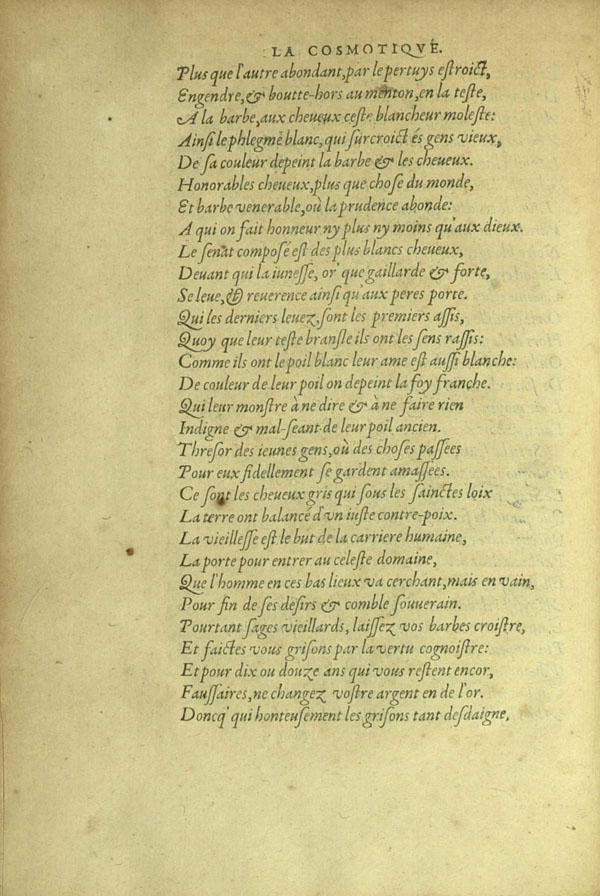 LA COSMOTIQVÉ.
Plus que l'autre abondant, par le pertuys eſtroict,
Engendre, & boutte-hors au menton, en la teſte,
A la barbe, aux cheueux ceſte blancheur moleſte:
Ainſi le phlegmé blanc, qui ſurcroict és gens vieux,
De ſa couleur depeint la barbe & les cheueux.
Honorables cheueux, plus que choſe du monde,
Et barbe venerable, où la prudence abonde:
A qui on fait honneur ny plus ny moins qu'aux dieux.
Le ſenat compoſé eſt des plus blancs cheueux,
Deuant qui la iuneſſe, or' que gaillarde & forte,
Se leue, & reuerence ainſi qu'aux peres porte.
Qui les derniers leuez, ſont les premiers aſſis,
Quoy que leur teſte branſle ils ont les ſens raſſis:
Comme ils ont le poil blanc leur ame eſt auſſi blanche:
De couleur de leur poil on depeint la foy franche.
Qui leur monſtre à ne dire & à ne faire rien
Indigne & mal-ſeant de leur poil ancien.
Threſor des ieunes gens, où des choſes paſſees
Pour eux fidellement ſe gardent amaſſees.
Ce ſont les cheueux gris qui ſous les ſainctes loix
La terre ont balancé d'vn iuſte contre-poix.
La vieilleſſe eſt le but de la carriere humaine,
La porte pour entrer au celeſte domaine,
Que l'homme en ces bas lieux va cerchant, mais en vain,
Pour fin de ſes deſirs & comble ſouuerain.
Pourtant ſages vieillards, laiſſez vos barbes croiſtre,
Et faictes vous griſons par la vertu cognoiſtre:
Et pour dix ou douze ans qui vous reſtent encor,
Fauſſaires, ne changez voſtre argent en de l'or.
Doncq' qui honteuſement les griſons tant deſdaigne,